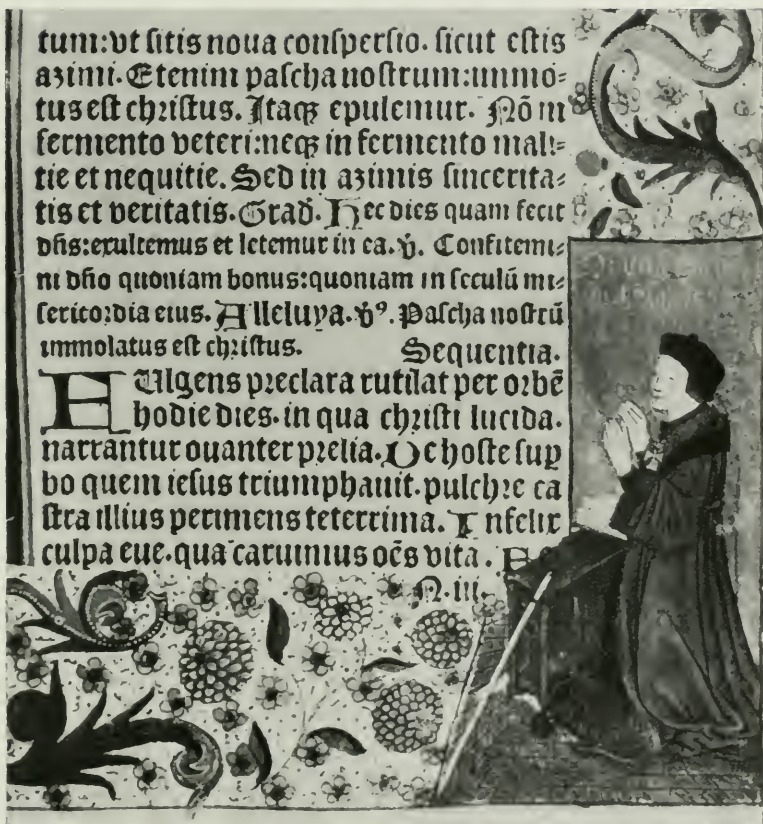 tum:vt sitis noua conspersio. sicut estis
azimi. Etenim pascha nostrum:immo⸗
tus est christus. Itaqȝ epulemur. Nō in
fermento veteri:neqȝ in fermento mali⸗
tie et nequitie. Sed in azimis sincerita⸗
tis et veritatis. Grad̄. Hec dies quam fecit
dn̄s:exultemus et letemur in ea. ꝟ. Confitemi⸗
ni dn̄o quoniam bonus:quoniam in seculū mi⸗
sericordia eius. Alleluya. ꝟꝰ. Pascha nostrū
immolatus est christus. Sequentia.
FUlgens preclara rutilat per orbē
hodie dies. in qua christi lucida.
narrantur ouanter prelia. De hoste suꝑ
bo quem iesus triumphauit. pulchre ca
stra illius perimens teterrima. Infelix
culpa eue. qua caruimus oēs vita.
N.iii.